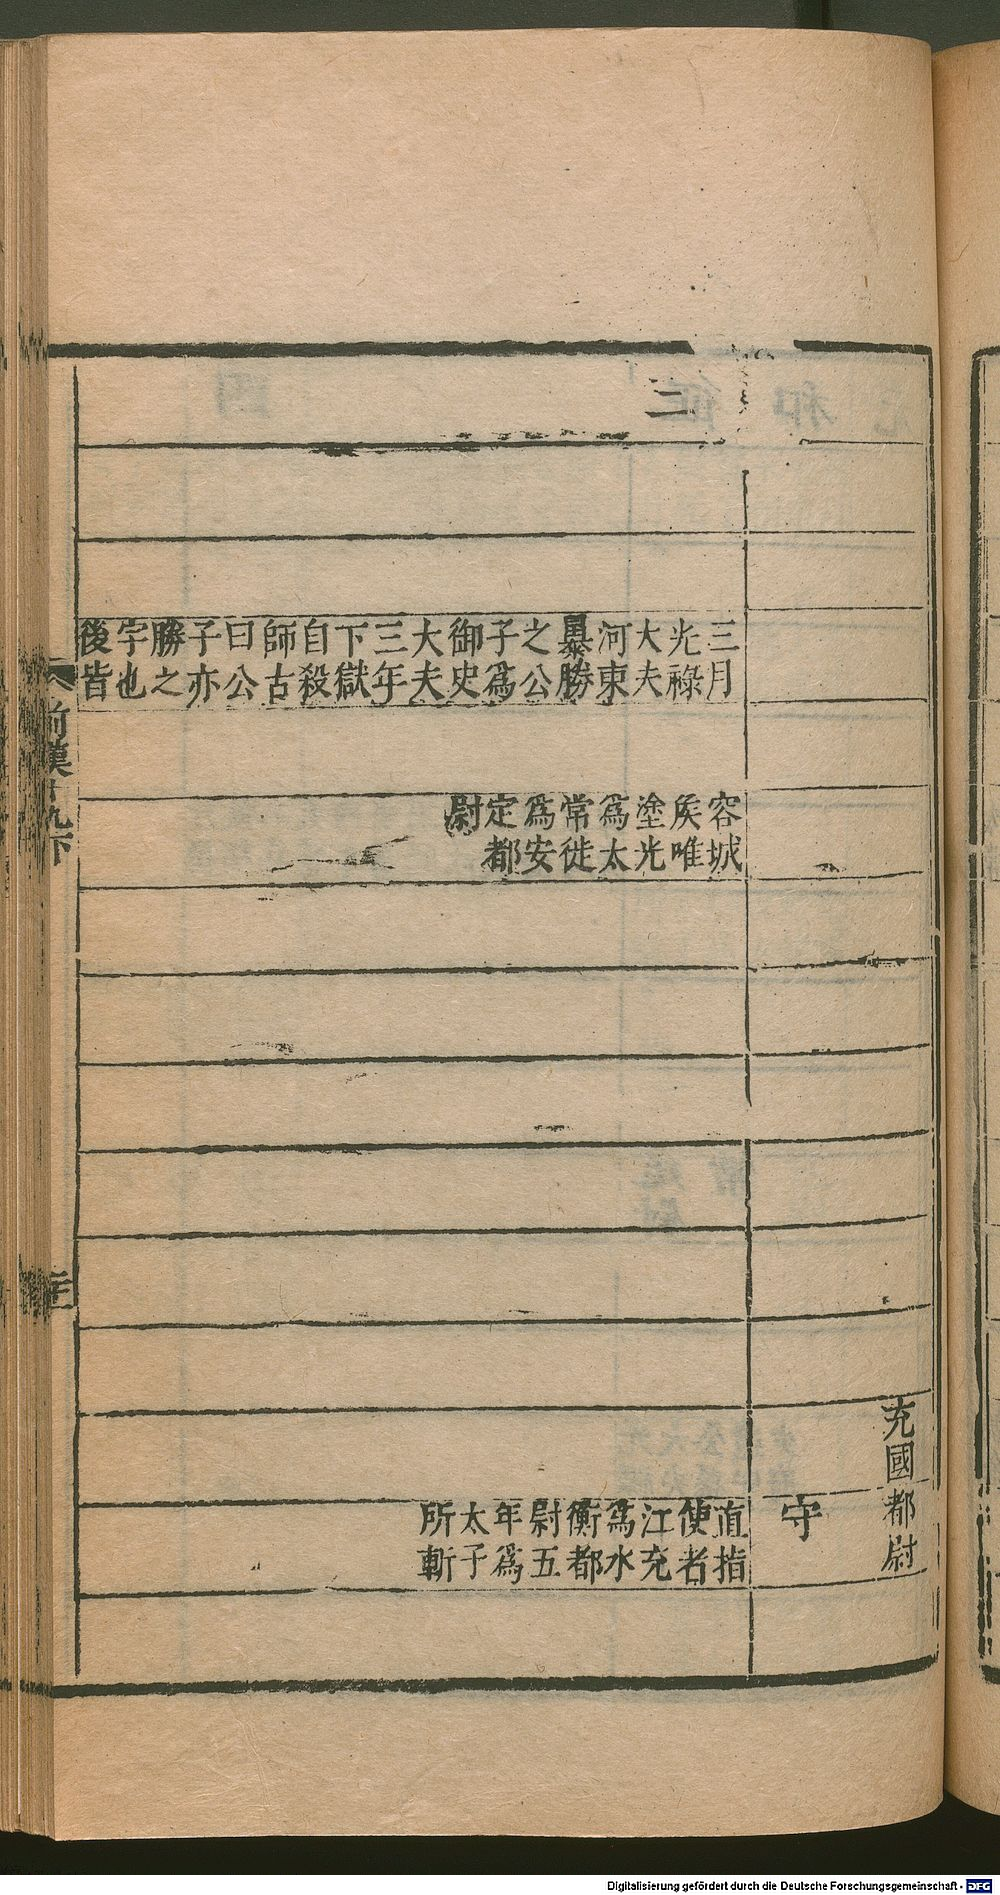 充國都尉
守
三
三月
光祿
大夫
河東
暴勝
之公
子爲
御史
大夫
三年
下獄
自殺
師古
曰公
子亦
勝之
字也
後皆
容城
矦唯
塗光
爲太
常徙
爲安
定都
尉
直指
使者
江充
爲水
衡都
尉五
年爲
太子
所斬
前漢十九下
Digitalisierung gefördert durch die Deutsche Forschungsgemeinschaft - DFG